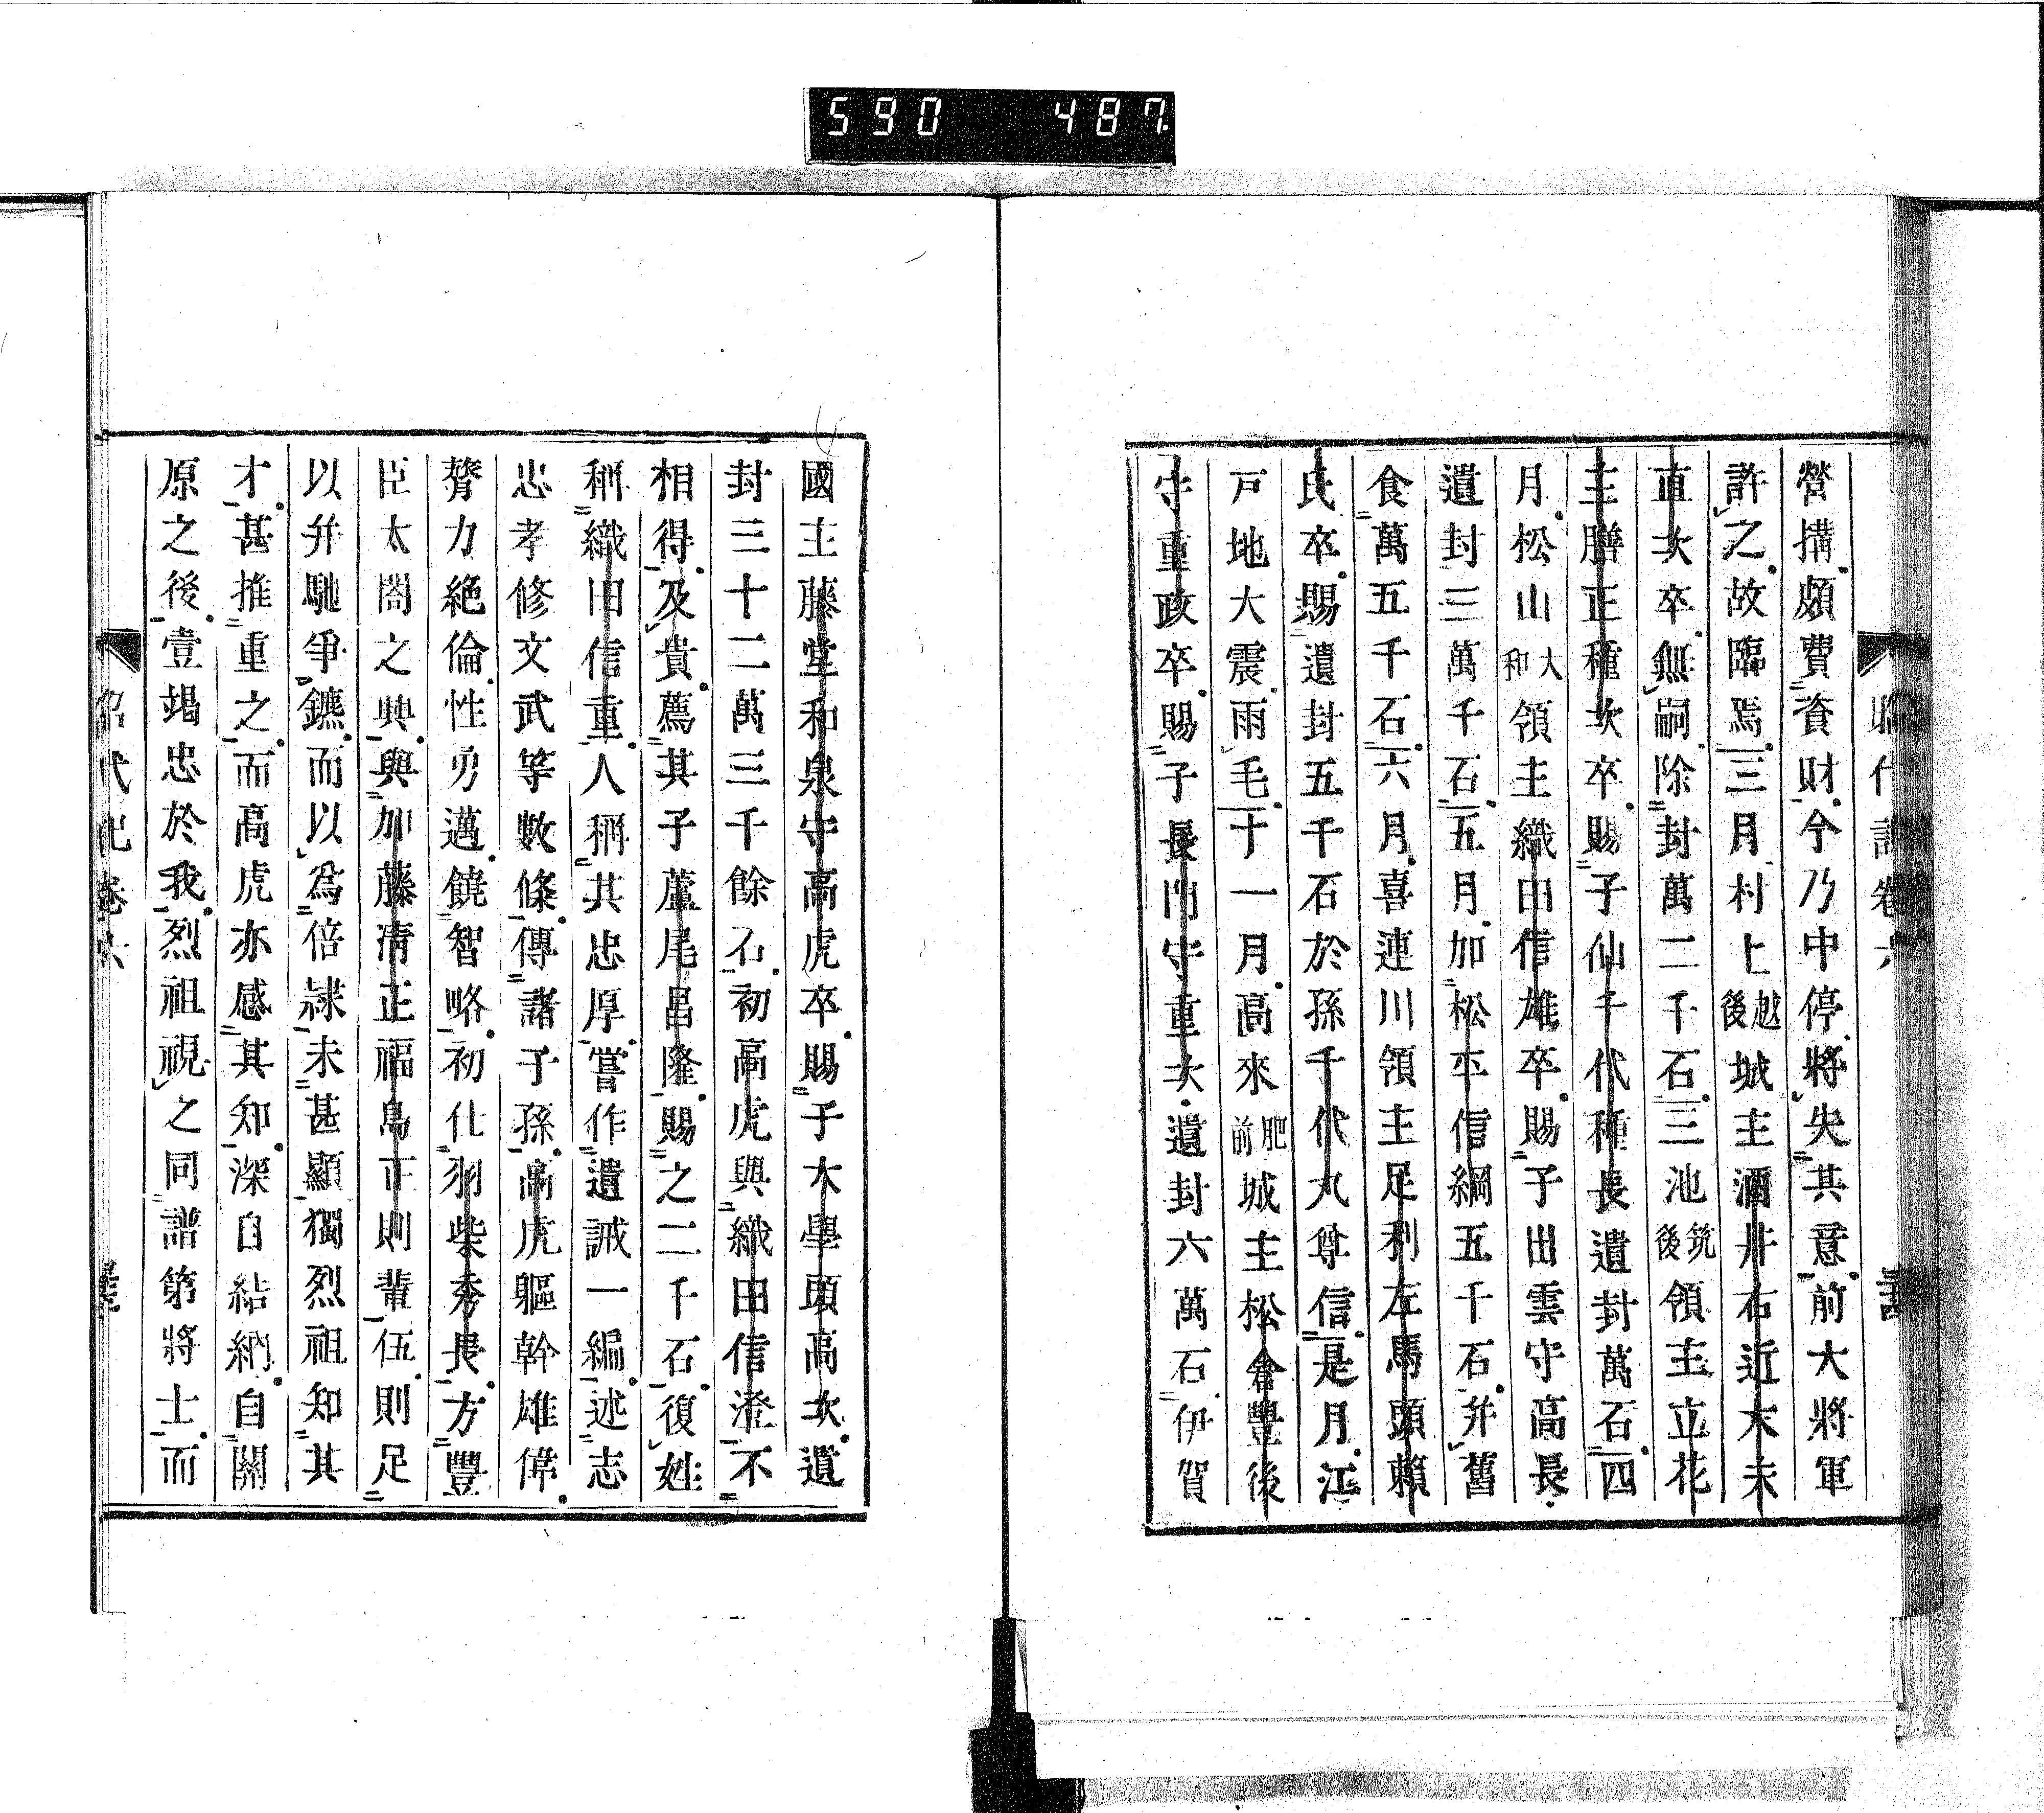 590 487
昭代記卷六
營搆頗費資財今乃中停將失其意前大將軍
許之故臨焉三月村上越後城主酒井右近大夫
直次卒無嗣除封萬二千石三池筑後領主立花
主膳正種次卒賜子仙千代種長遺封萬石四
月松山大和領主織田信雄卒賜子出雲守高長
遺封三萬千石五月加松平信綱五千石并舊
食萬五千石六月喜連川領主足利左馬頭賴
氏卒賜遺封五千石於孫千代丸尊信是月江
戸地大震雨毛十一月高來肥前城主松倉豐後
守重政卒賜子長門守重次遺封六萬石伊賀
國主藤堂和泉守高虎卒賜子大學頭高次遺
封三十二萬三千餘石初高虎與織田信澄不
相得及貴薦其子蘆尾昌隆賜之二千石復姓
稱織田信重人稱其忠厚嘗作遺誡一編述志
忠孝修文武等數條傳諸子孫高虎軀幹雄偉
膂力絶倫性勇邁饒智略初仕羽柴秀長方豐
臣太閤之興與加藤淸正福島正則輩伍則足
以并馳爭鑣而以爲倍隷未甚顯獨烈祖知其
才甚推重之而高虎亦感其知深自結納自關
原之後壹竭忠於我烈祖視之同譜第將士而
昭代記卷六